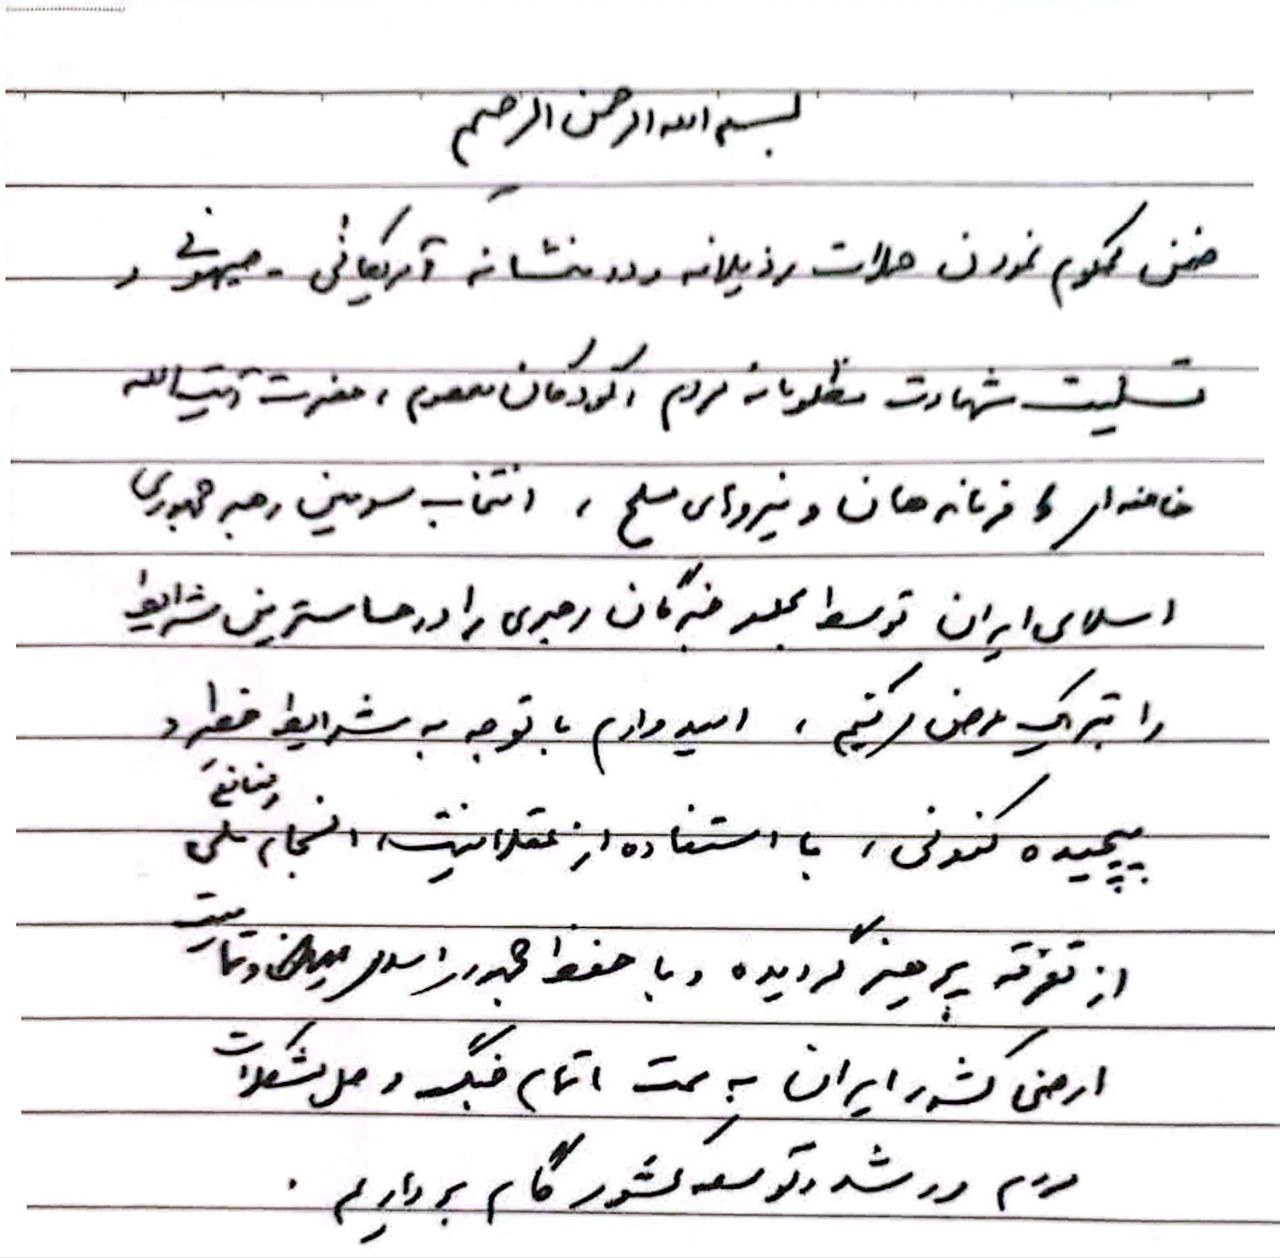 بسم الله الرحمن الرحیم
ضمن محکوم نمودن حملات رذیلانه و ددمنشانه آمریکائی - صیهونی و
تسلیت شهادت مظلومانه مردم ، کودکان معصوم ، حضرت آیت الله
خامنه ای و فرماندهان و نیروهای مسلح ، انتخاب سومین رهبر جمهوری
اسلامی ایران توسط مجلس خبرگان رهبری را در حساسترین شرایط
را تبریک عرض میکنیم ، امیدوارم با توجه به شرایط خطیر و
پیچیده کنونی ، با استفاده از عقلانیت ، انسجام ملی
و منافع
از تفرقه پرهیز گردیده و با حفظ جمهوری اسلامی و تمامیت
ارضی کشور ایران به سمت اتمام جنگ و حل مشکلات
مردم و رشد و توسعه کشور گام برداریم .